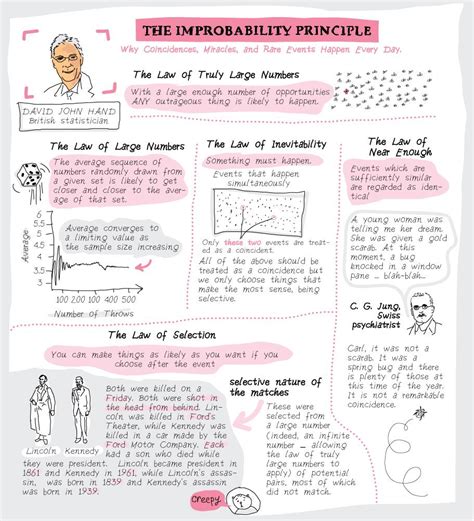 THE IMPROBABILITY PRINCIPLE
Why Coincidences, Miracles, and Rare Events Happen Every Day.
DAVID JOHN HAND
British statistician
The Law of Truly Large Numbers
With a large enough number of opportunities
ANY outrageous thing is likely to happen.
The Law of Large Numbers
The average sequence of
numbers randomly drawn from
a given set is likely to get
closer and closer to the aver-
age of that set.
Average
6
5.5
5
4.5
4
3.5
3
Average converges to
a limiting value as
the sample size increasing
100 200 300 400 500
Number of Throws
The Law of Inevitability
Something must happen.
Events that happen
simultaneously
Only these two events are treat-
ed as a coincident.
All of the above should be
treated as a coincidence but
we only choose things that
make the most sense, being
selective.
The Law of
Near Enough
Events which are
sufficiently similar
are regarded as iden-
tical
A young woman was
telling me her dream.
She was given a gold
scarab. At this
moment, a bug
knocked in a window
pane … blah-blah…
C. G. Jung,
Swiss
psychiatrist
Carl, it was not a
scarab. It was a
spring bug and there
is plenty of those at
this time of the year.
It is not a remarkable
coincidence.
The Law of Selection
You can make things as likely as you want if you
choose after the event
Lincoln Kennedy
Both were killed on a
Friday. Both were shot in
the head from behind. Lin-
coln was killed in Ford's
Theater, while Kennedy was
killed in a car made by the
Ford Motor Company. Each
had a son who died while
they were president. Lincoln became president in
1861 and Kennedy in 1961, while Lincoln's assas-
sin, was born in 1839 and Kennedy's assassin,
was born in 1939.
creepy
selective nature of
the matches
These were
selected from
a large number
(indeed, an infinite
number … allowing
the law of truly
large numbers to
apply) of potential
pairs, most of which
did not match.